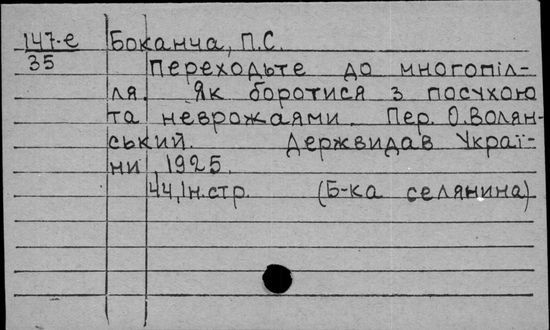 147-е Боканча, П.С.
35 Переходьте до многопіл-
ля. Як боротися з посухою
та неврожаями. Пер. О.Волян-
ський. Держвидав Украї-
ни 1925.
44,Ін.стр. (Б-ка селянина)